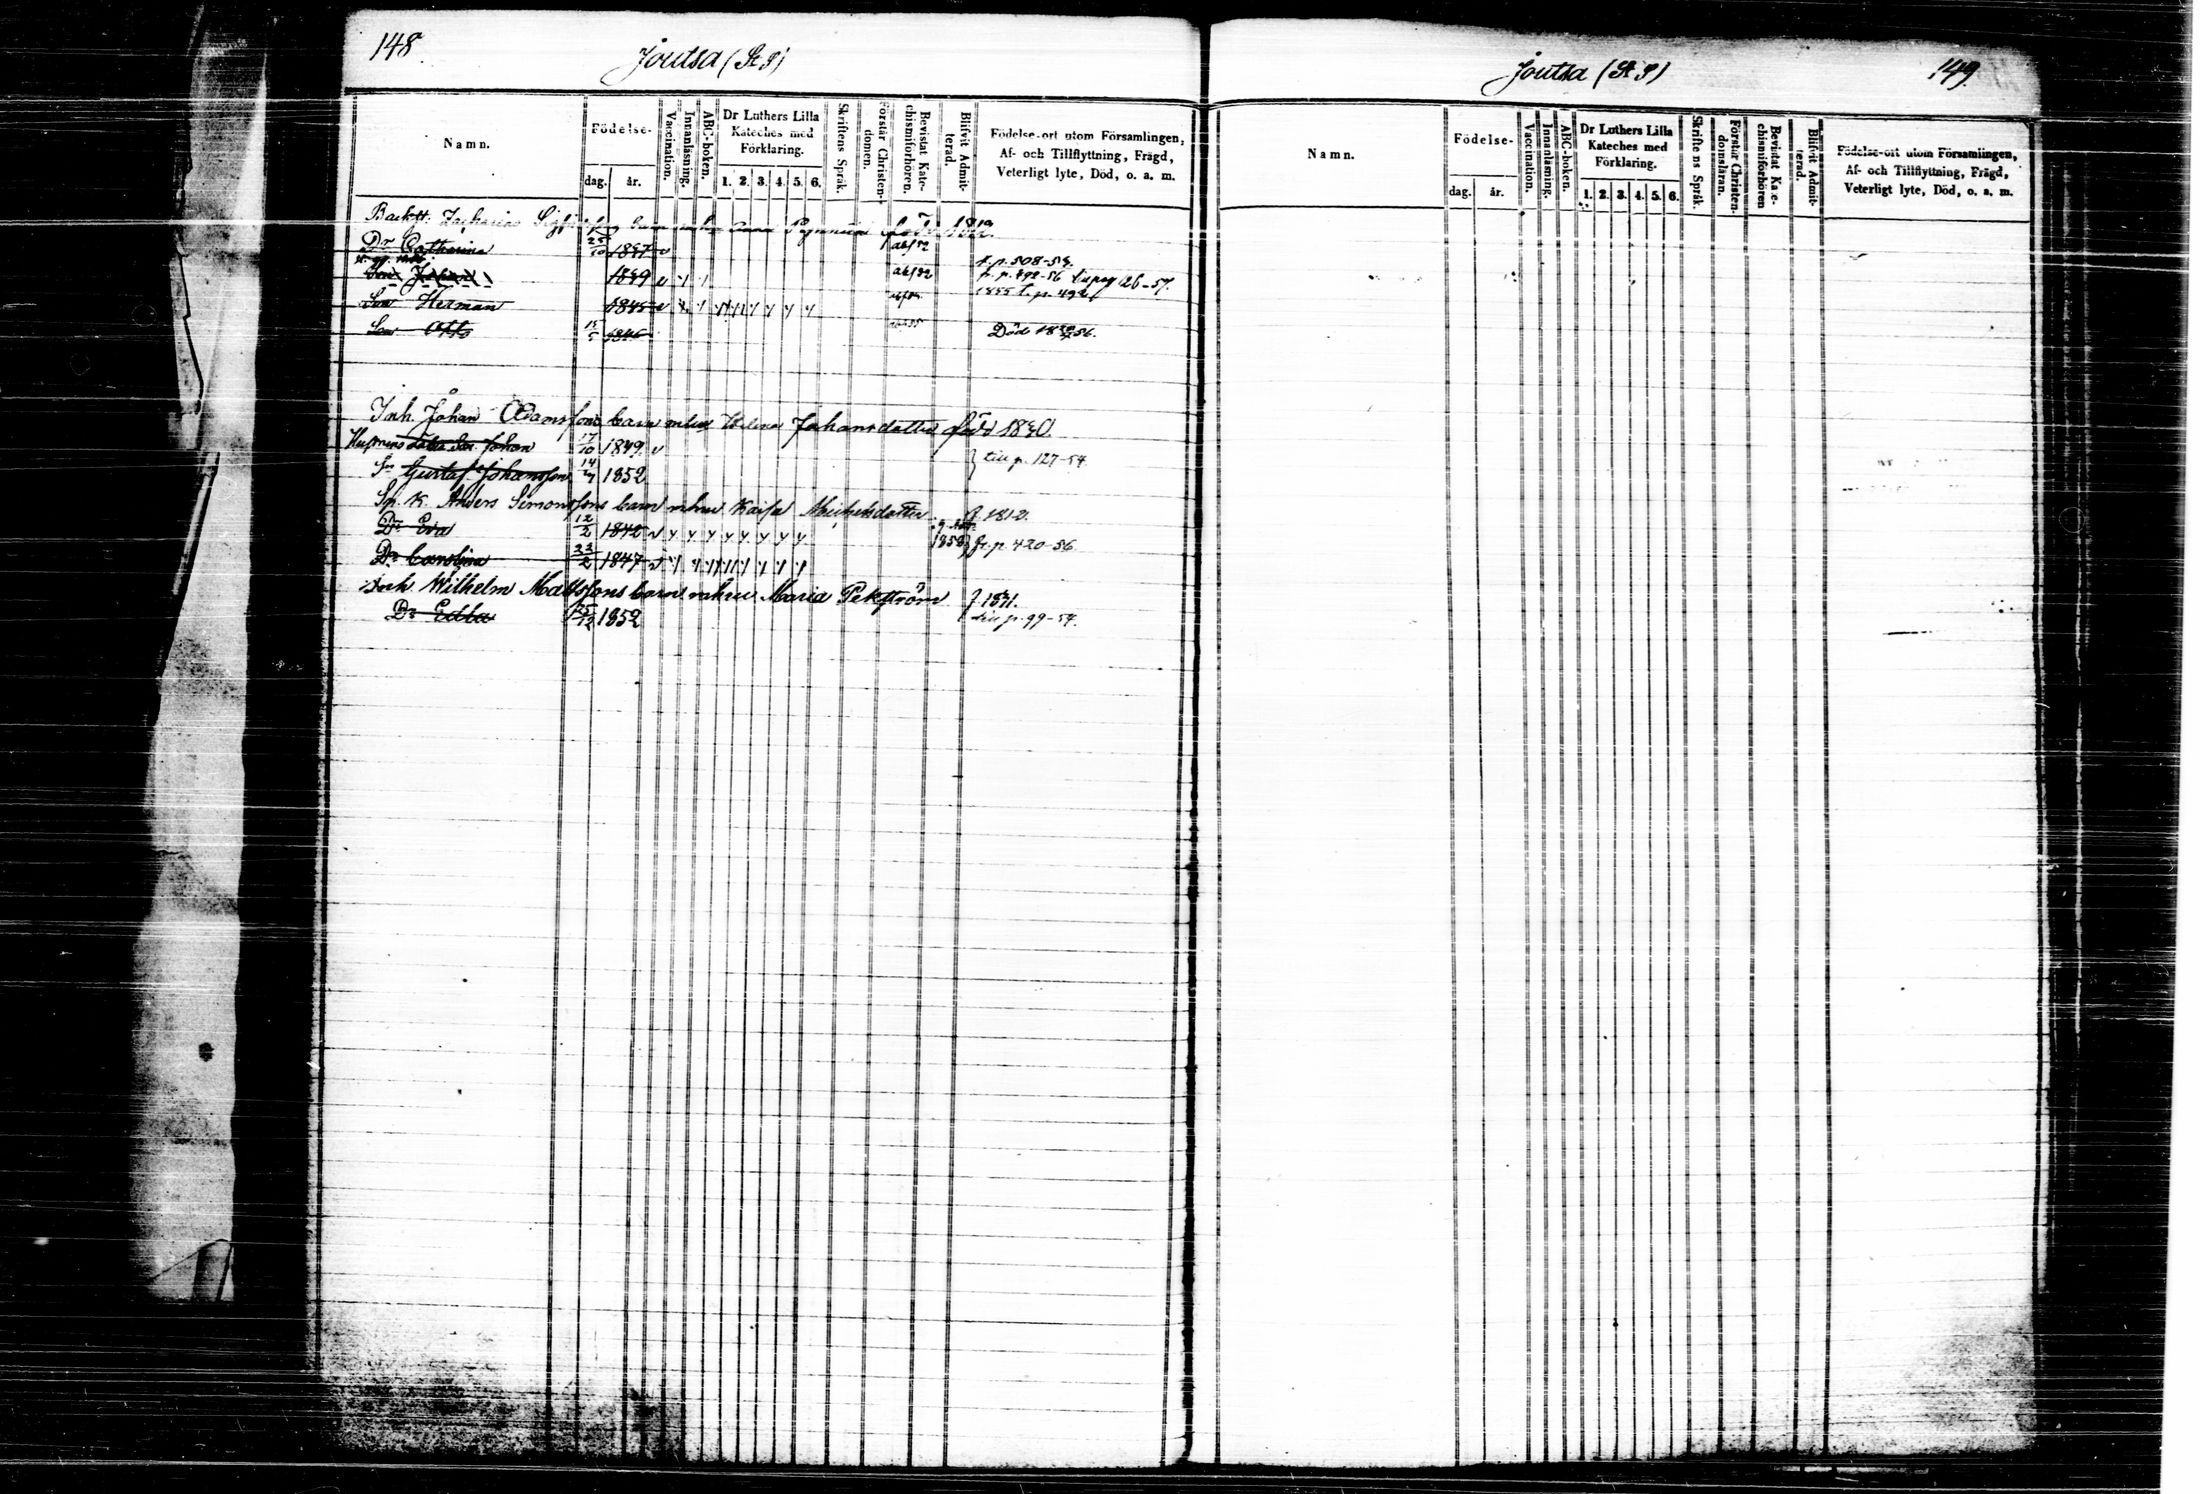 148.
Joutsa (St I)
Namn.
Födelse-
dag.
år.
Vaccination.
Innanläsning.
ABC-boken.
Dr Luthers Lilla Kateches med Förklaring.
1. 2. 3. 4. 5. 6.
Skriftens Språk.
Förstår Christen-domen.
Bevistat Kate-chismiförhören.
Blifvit Admit-terad.
Födelse-ort utom Församlingen,
Af- och Tillflyttning, Frägd,
Veterligt lyte, Död, o. a. m.
Backst. Zacharias barn Anna född 1812.
Dr Catharina 25/10 1837 v f. p. 508-54.
Son Johan 1839 v p. 492-56 126-57.
Son Herman 1845 v 1855 t. p. 492
Son Otto 1846 Död 56.
Inh. Johan Adamssons barn m. hu Helena Johansdotter född 1830.
Johan 17/10 1849. v
Sn Gustaf Johansson 14/4 1852 till p. 127-54.
Sp. K. Anders Simonssons barn m hu Kaisa Michelsdotter f. 1812.
Dr Eva 12/2 1842 v 1858 fr. p. 420-56
Dr Carolina 23/2 1847 v
Inh. Wilhelm Mattssons barn m hu Maria Pekström f. 1831.
Dr Edla 25/12 1852 till p. 99-54.
Joutsa (St I)
149.
Namn.
Födelse-
dag.
år.
Vaccination.
Innanläsning.
ABC-boken.
Dr Luthers Lilla Kateches med Förklaring.
1. 2. 3. 4. 5. 6.
Skriftens Språk.
Förstår Christen-domsläran.
Bevistat Ka e-chismiförhören
Blifvit Admit-terad.
Födelse-ort utom Församlingen,
Af- och Tillflyttning, Frägd,
Veterligt lyte, Död, o. a. m.